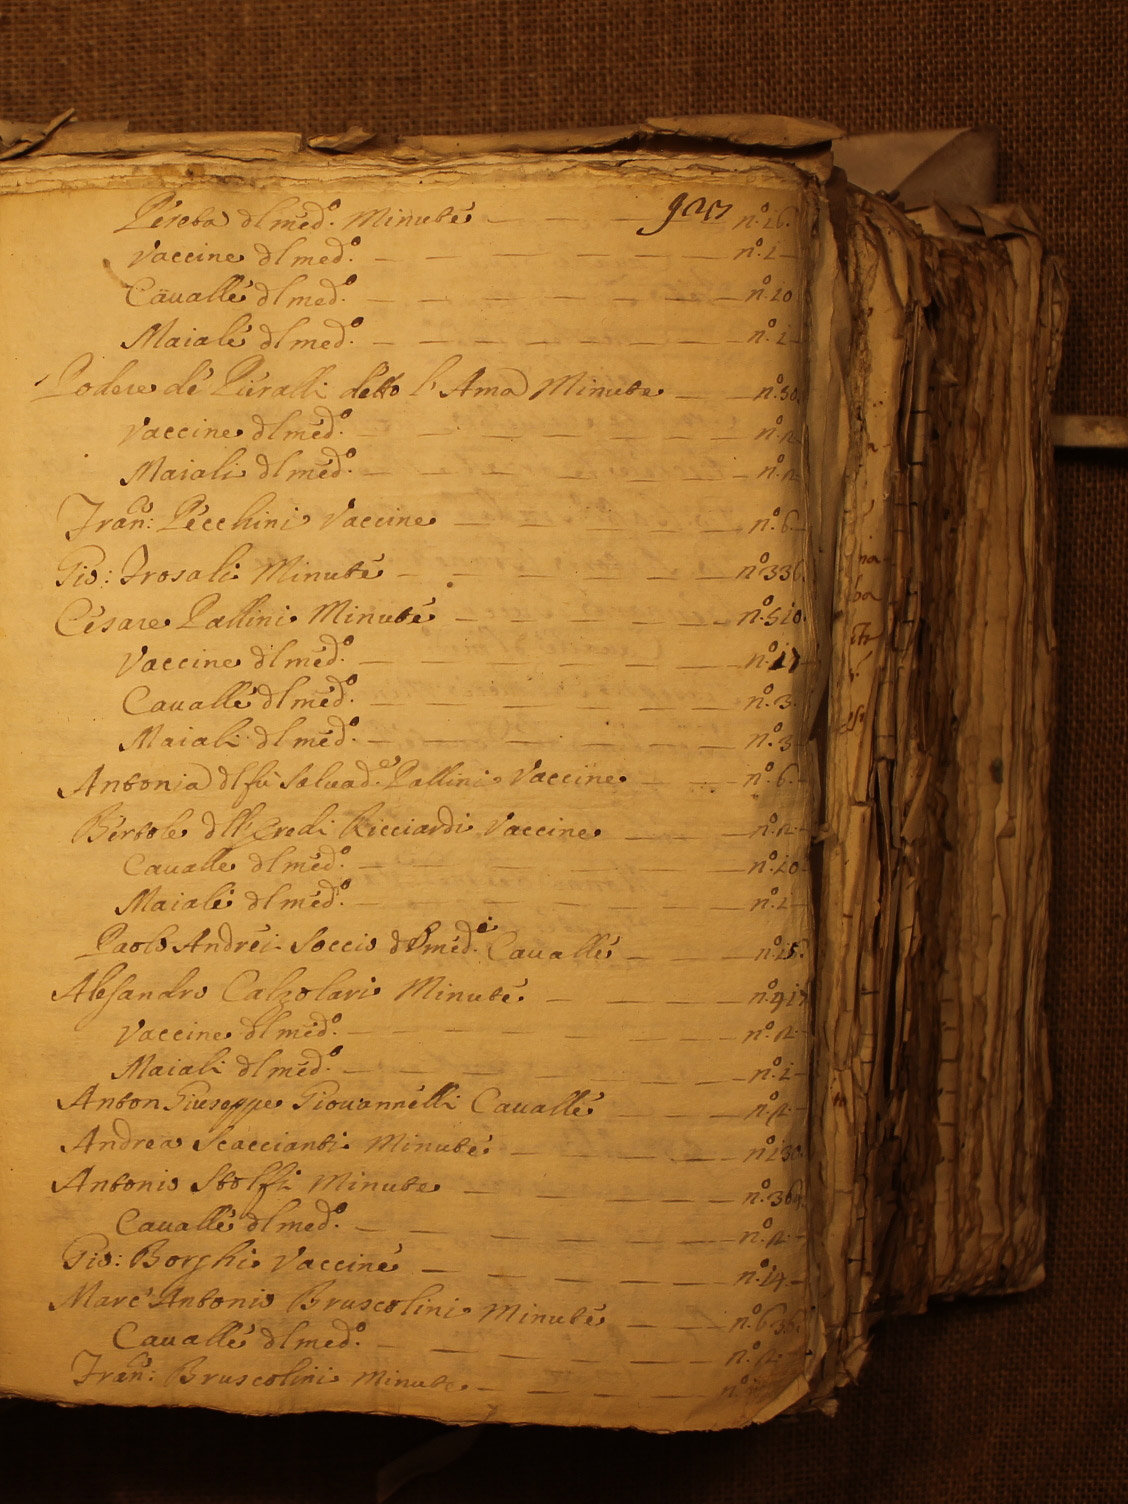 Pereta dl med.o Minute n.o 26.
Vaccine dl med.o n.o 1
Cavalle dl med.o n.o 10
Maiali dl med.o n.o 1
Podere de Pieralli detto l'Ama Minute n.o 50
Vaccine dl med.o n.o 2
Maiali dl med.o n.o 2
Fran: Pecchini Vaccine n.o 6
Gio: Frosali Minute n.o 336
Cesare Pallini Minute n.o 510
Vaccine dl med.o n.o 17
Cavalle dl med.o n.o 3
Maiali dl med.o n.o 3
Antonia dl fu Salvad.e Pallini Vaccine n.o 6
Bertole dll Eredi Ricciardi Vaccine n.o 2
Cavalle dl med.o n.o 10
Maiali dl med.o n.o 1
Paolo Andrei Soccio dl med.i Cavalle n.o 15
Alesandro Calzolari Minute n.o 917
Vaccine dl med.o n.o 2
Maiali dl med.o n.o 1
Anton Giuseppe Giovannelli Cavalle n.o 2
Andrea Scaccianti Minute n.o 130
Antonio Stolfi Minute n.o 36
Cavalle dl med.o n.o 2
Gio: Borghi Vaccine n.o 14
Marc'Antonio Bruscolini Minute n.o 636
Cavalle dl med.o n.o 2
Fran: Bruscolini Minute n.o